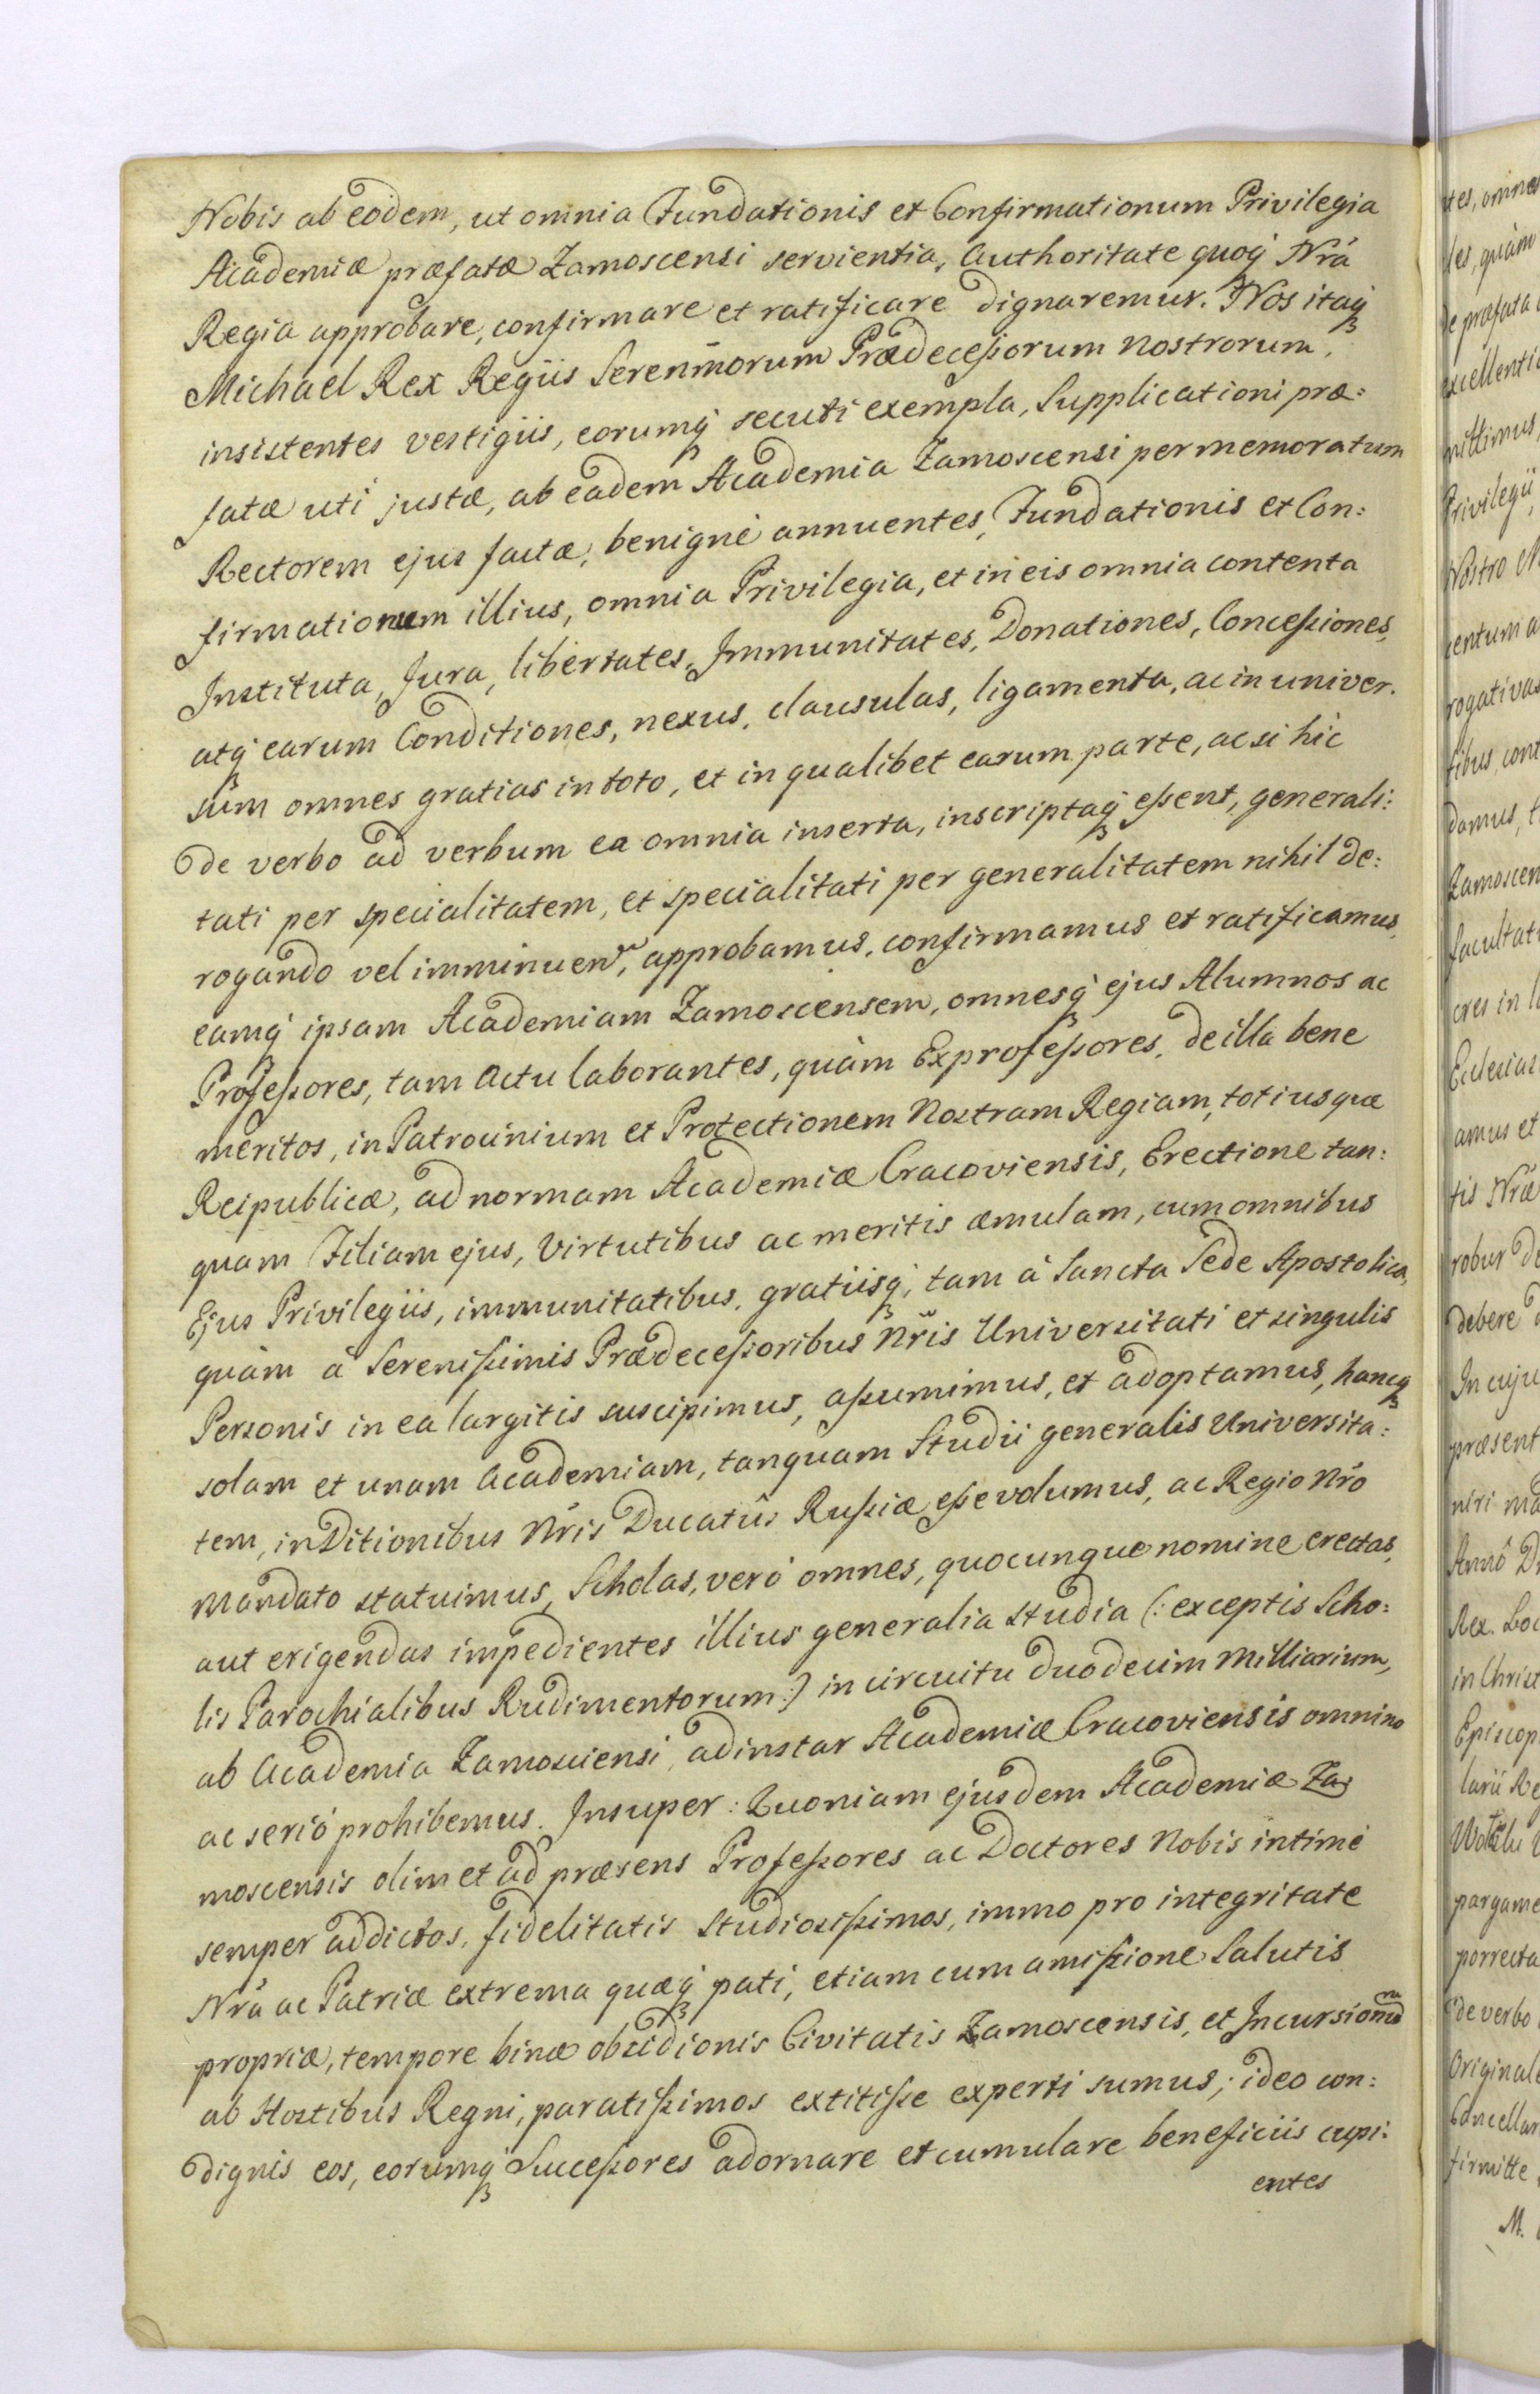 Nobis ab eodem, ut omnia Fundationis et Confirmationum Privilegia
Academiæ præfatæ Zamoscensi servientia, Authoritate quoq̃ Nrá
Regia approbare, confirmare et ratificare dignaremur. Nos itaq̃
Michael Rex Regiis Serenm̃orum Prædeceßorum nostrorum,
insistentes vestigiis, eorumq̃ secuti exempla, Supplicationi præ:
fatæ uti justæ, ab eadem Academia Zamoscensi per memoratum
Rectorem ejus factæ, benigné annuentes, Fundationis et Con:
firmationum illius, omnia Privilegia, et in eis omnia contenta
Instituta, Jura, libertates, Immunitates, Donationes, Conceßiones,
atq̃ earum Conditiones, nexus, clausulas, ligamenta, ac in univer.
sum omnes gratias in toto, et in qualibet earum parte, ac si hic
de verbo ad verbum ea omnia inserta, inscriptaq̃ eßent, generali:
tati per specialitatem, et specialitati per generalitatem nihil de:
rogando vel imminuen͂, approbamus, confirmamus et ratificamus,
eamq̃ ipsam Academiam Zamoscensem, omnesq̃ ejus Alumnos ac
Profeßores, tam Actu laborantes, quàm Exprofeßores, de illa bene
meritos, in Patrocinium et Protectionem Nostram Regiam, totiusque
Reipublicæ, ad normam Academiæ Cracoviensis, Erectione tan:
quam Filiam ejus, Virtutibus ac meritis æmulam, cum omnibus
Ejus Privilegiis, immunitatibus, gratiisq̃, tam à Sancta Sede Apostolica,
quàm à Serenißimis Prædeceßoribus Nr̃is Universitati et singulis
Personis in ea largitis suscipimus, aßumimus, et adoptamus, hancq̃
solam et unam Academiam, tanquam Studii generalis Universita:
tem, in Ditionibus Nr̃is Ducatûs Rußiæ eße volumus, ac Regio Nr̃o
Mandato statuimus, Scholas, veró omnes, quocunque nomine erectas,
aut erigendas impedientes illius generalia studia (: exceptis Scho:
lis Parochialibus Rudimentorum :) in circuitu duodecim Milliarium,
ab Academia Zamosciensi, ad instar Academiæ Cracoviensis omnino
ac serió prohibemus. Insuper: Quoniam ejusdem Academiæ Za:
moscensis olim et ad præsens Profeßores ac Doctores Nobis intimé
semper addictos, fidelitatis Studiosißimos, immo pro integritate
Nr̃a ac Patriæ extrema quæq̃ pati, etiam cum amißione Salutis
propriæ, tempore binæ obsidionis Civitatis Zamoscensis, et Incursionũ
ab Hostibus Regni, paratißimos extitiße experti sumus; ideo con:
dignis eos, eorumq̃ Succeßores adornare et cumulare beneficiis cupi:
entes